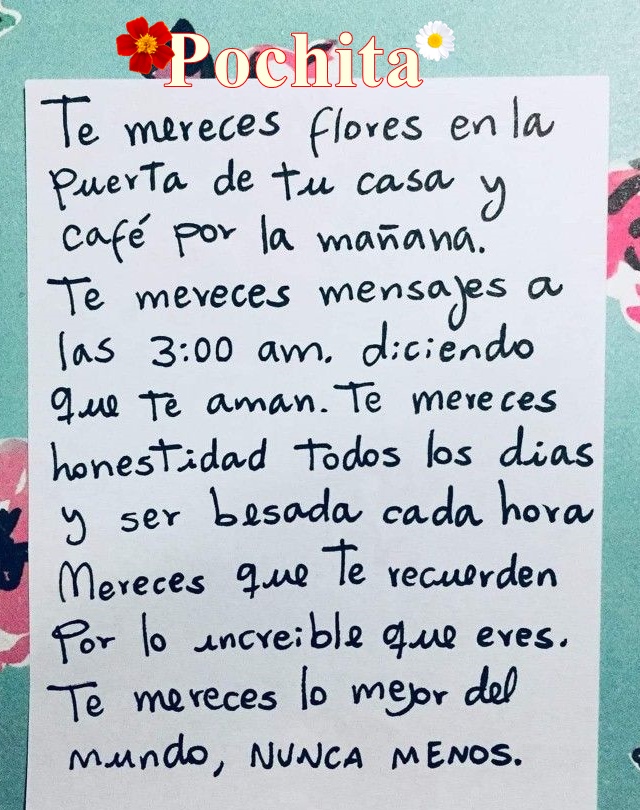 Pochita
Te mereces flores en la
puerta de tu casa y
café por la mañana.
Te mereces mensajes a
las 3:00 am. diciendo
que te aman. Te mereces
honestidad todos los dias
y ser besada cada hora
Mereces que te recuerden
Por lo increible que eres.
Te mereces lo mejor del
mundo, NUNCA MENOS.